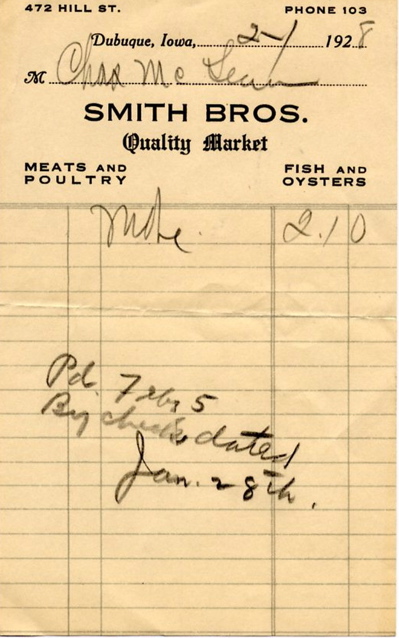 472 HILL ST. PHONE 103
Dubuque, Iowa, 2-1 1928
M Chas Mc Lean
SMITH BROS.
Quality Market
MEATS AND POULTRY FISH AND OYSTERS
Mdse. 2.10
Pd. Feby 5
By check dated
Jan. 28th.